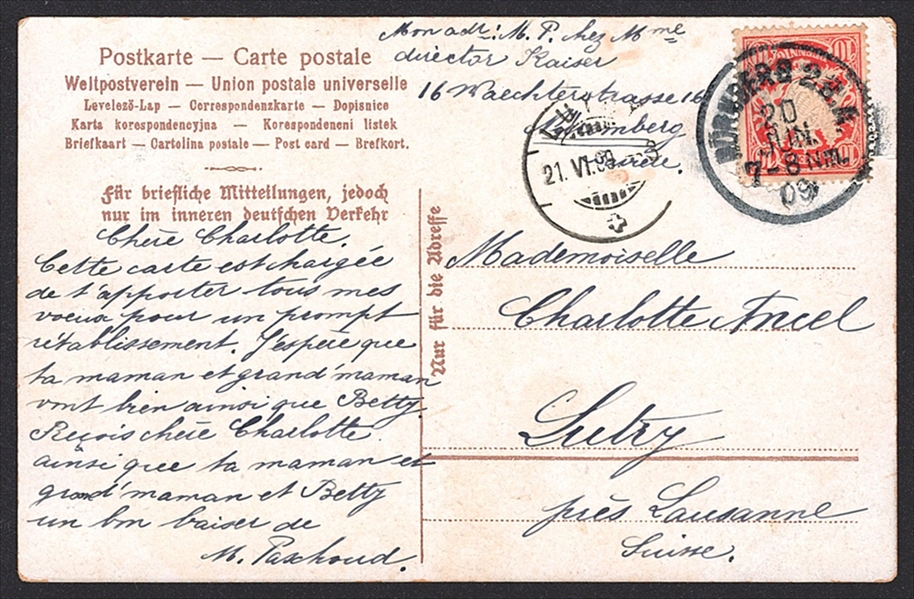 Postkarte — Carte postale
Weltpostverein — Union postale universelle
Levelező-Lap — Correspondenzkarte — Dopisnice
Karta korespondencyjna — Korespondencni listek
Briefkaart — Cartolina postale — Post card — Brefkort.
Für briefliche Mitteilungen, jedoch
nur im inneren deutschen Verkehr
Chère Charlotte.
Cette carte est chargée
de t'apporter tous mes
voeux pour un prompt
rétablissement. J'espère que
ta maman et grand'maman
vont bien ainsi que Betty.
Reçois chère Charlotte
ainsi que ta maman et
grand'maman et Betty
un bon baiser de
M. Paschoud.
Mon adr: M. P. chez Mme
director Kaiser
16 Waechterstrasse 16
Nürnberg
NÜRNBERG 2 B.P.
20
JUN.
7-8 Nm.
09
21. VI. 09
Nur für die Adresse
Mademoiselle
Charlotte Ancel
Lutry
près Lausanne
Suisse.